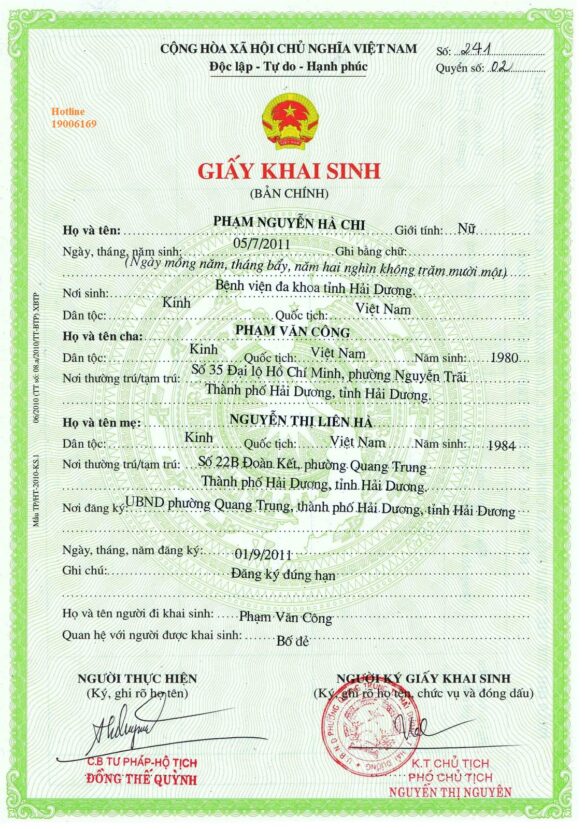 CỘNG HÒA XÃ HỘI CHỦ NGHĨA VIỆT NAM
Độc lập - Tự do - Hạnh phúc
Số: 241
Quyển số: 02
Hotline
19006169
GIẤY KHAI SINH
(BẢN CHÍNH)
Họ và tên: PHẠM NGUYỄN HÀ CHI Giới tính: Nữ
Ngày, tháng, năm sinh: 05/7/2011 Ghi bằng chữ:
(Ngày mồng năm, tháng bẩy, năm hai nghìn không trăm mười một)
Nơi sinh: Bệnh viện đa khoa tỉnh Hải Dương.
Dân tộc: Kinh Quốc tịch: Việt Nam
Họ và tên cha: PHẠM VĂN CÔNG
Dân tộc: Kinh Quốc tịch: Việt Nam Năm sinh: 1980
Nơi thường trú/tạm trú: Số 35 Đại lộ Hồ Chí Minh, phường Nguyễn Trãi
Thành phố Hải Dương, tỉnh Hải Dương.
Họ và tên mẹ: NGUYỄN THỊ LIÊN HÀ
Dân tộc: Kinh Quốc tịch: Việt Nam Năm sinh: 1984
Nơi thường trú/tạm trú: Số 22B Đoàn Kết, phường Quang Trung
Thành phố Hải Dương, tỉnh Hải Dương.
Nơi đăng ký: UBND phường Quang Trung, thành phố Hải Dương, tỉnh Hải Dương
Ngày, tháng, năm đăng ký: 01/9/2011
Ghi chú: Đăng ký đúng hạn
Họ và tên người đi khai sinh: Phạm Văn Công
Quan hệ với người được khai sinh: Bố đẻ
NGƯỜI THỰC HIỆN
(Ký, ghi rõ họ tên)
C.B TƯ PHÁP-HỘ TỊCH
ĐỒNG THẾ QUỲNH
NGƯỜI KÝ GIẤY KHAI SINH
(Ký, ghi rõ họ tên, chức vụ và đóng dấu)
K.T CHỦ TỊCH
PHÓ CHỦ TỊCH
NGUYỄN THỊ NGUYÊN
Mẫu TP/HT-2010-KS.1 06/2010 (TT số: 08.a/2010/TT-BTP) XBTP